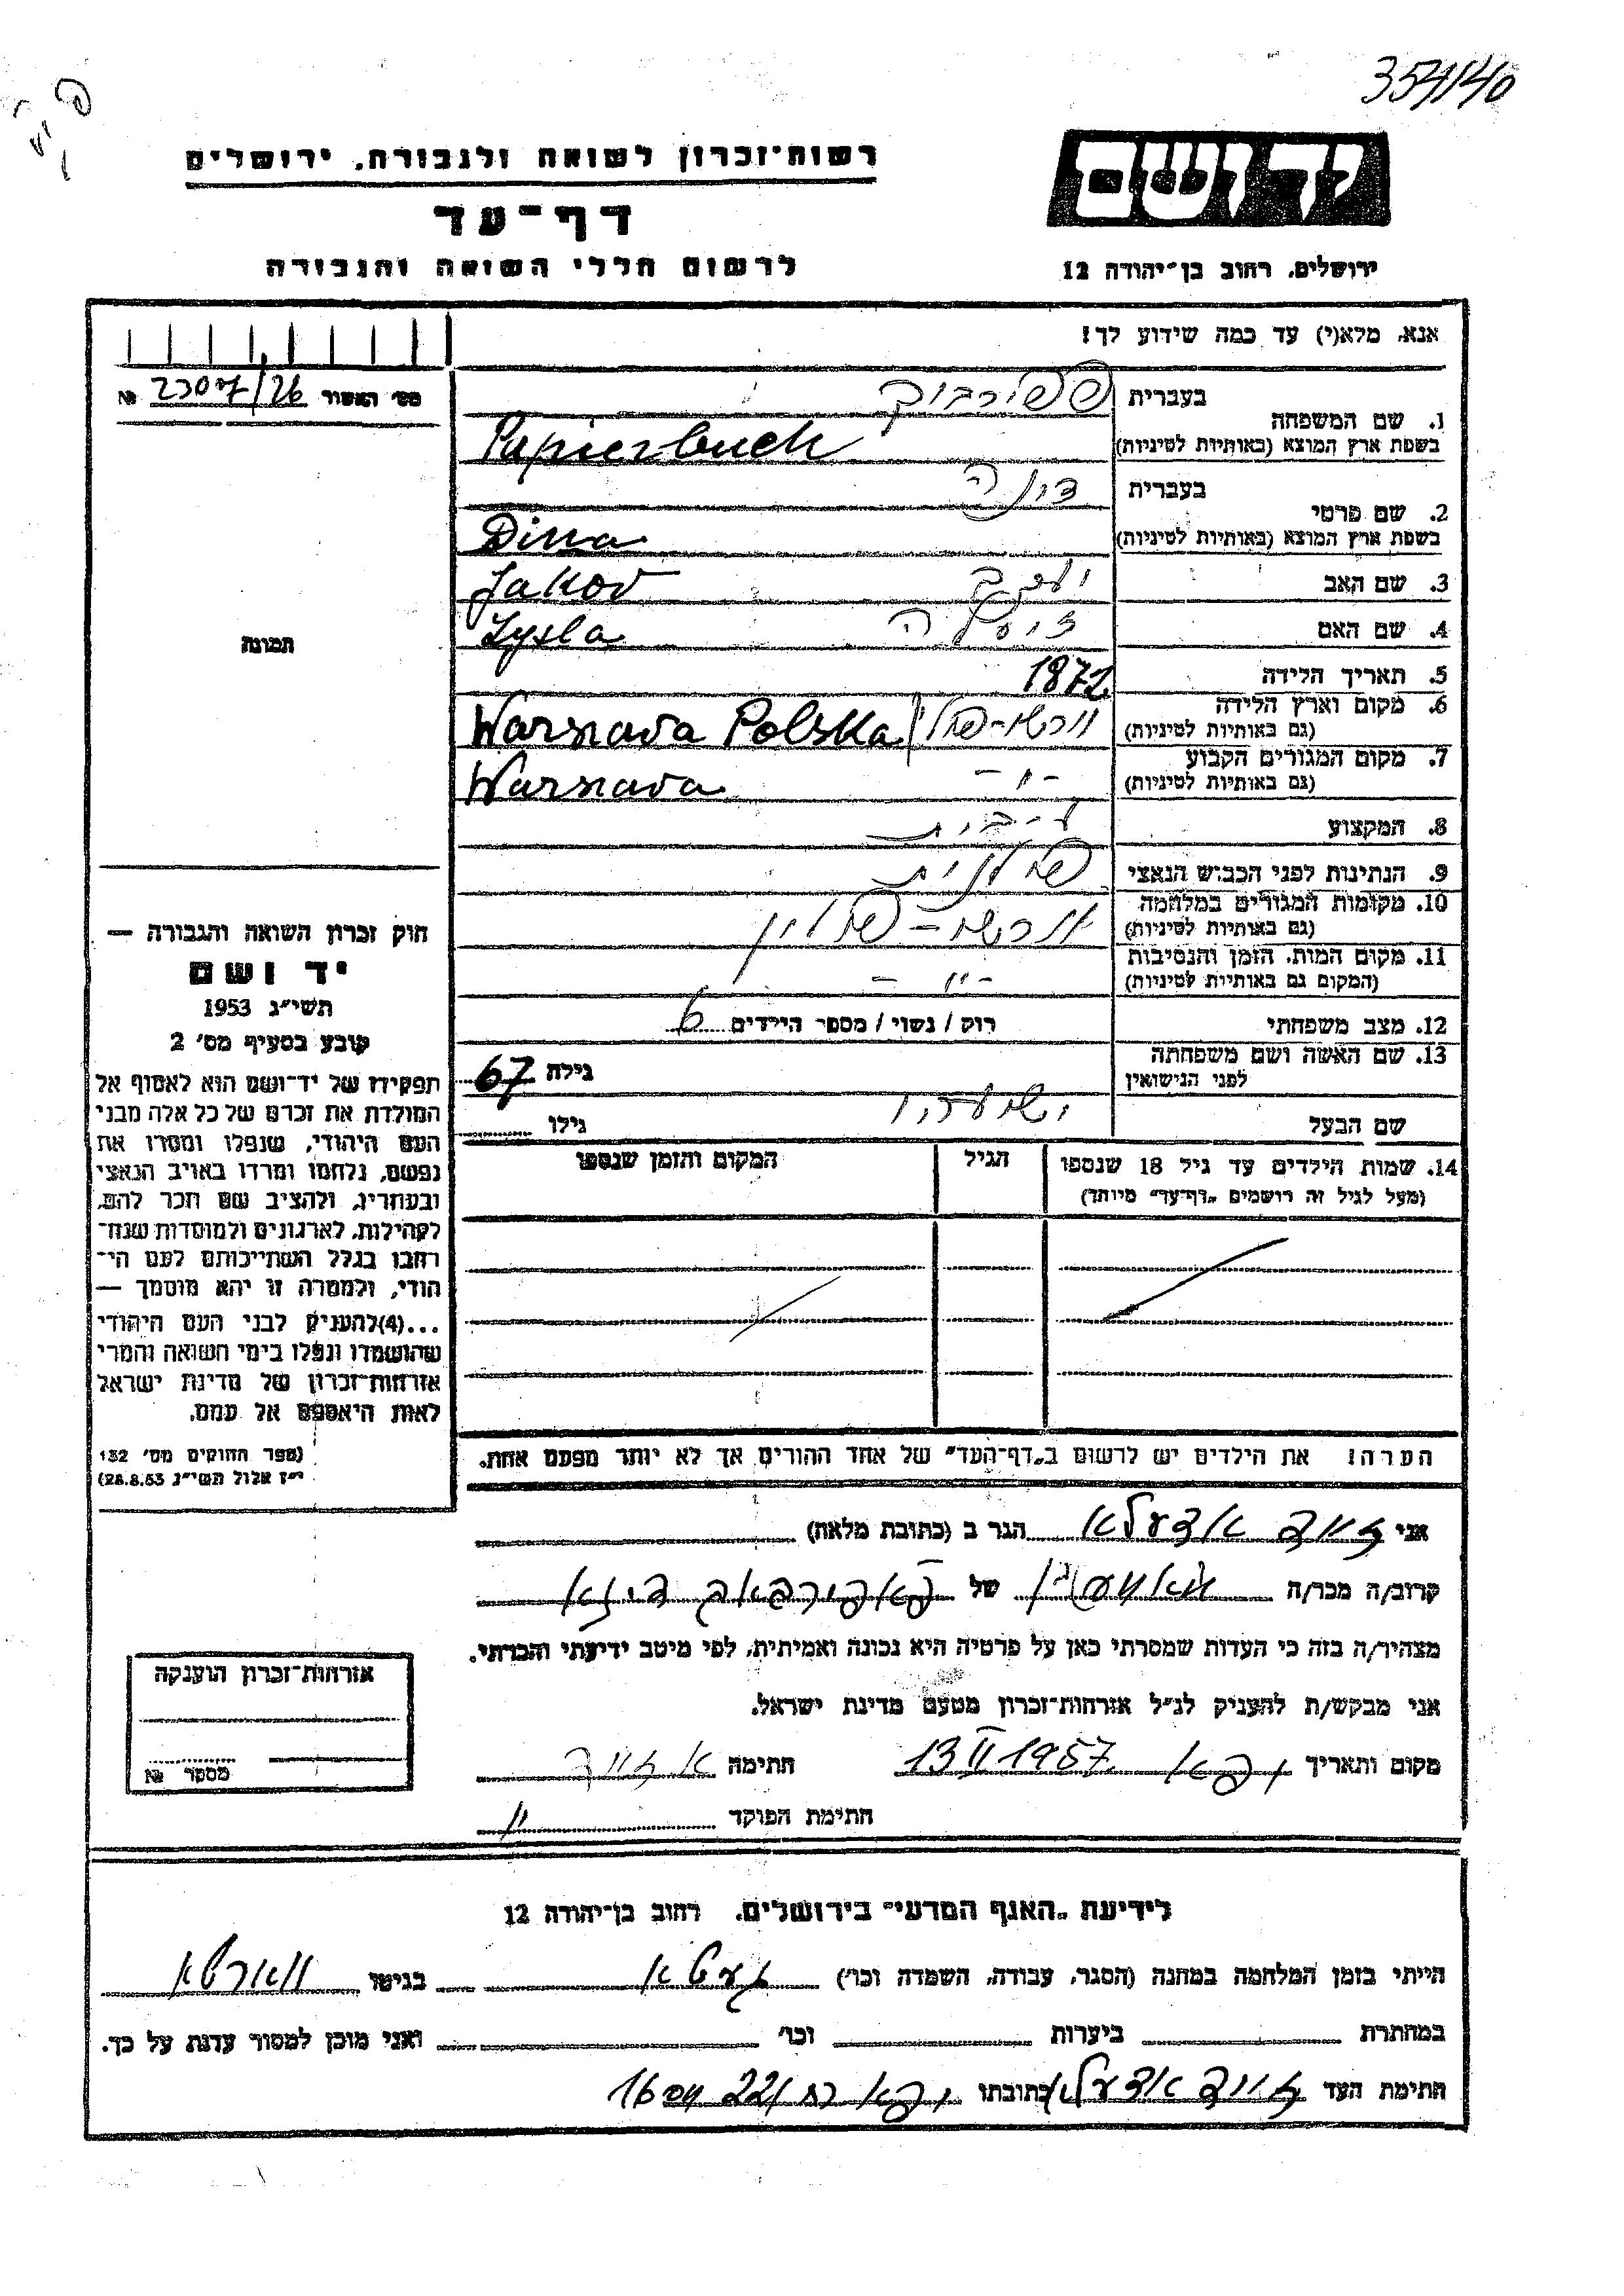 354140
רשות־זכרון לשואה ולגבורה, ירושלים
דף־עד
לרשום חללי השואה והגבורה
יד ושם
ירושלים, רחוב בן־יהודה 12
אנא, מלא(י) עד כמה שידוע לך!
מס׳ האשור 2307/26 №
1. שם המשפחה
בעברית פפירבוך
בשפת ארץ המוצא (באותיות לטיניות) Papierbuch
2. שם פרטי
בעברית דינה
בשפת ארץ המוצא (באותיות לטיניות) Dina
3. שם האב יעקב Jakov
4. שם האם Zysla
5. תאריך הלידה 1872
6. מקום וארץ הלידה
(גם באותיות לטיניות) Warszava Polska
7. מקום המגורים הקבוע
(גם באותיות לטיניות) -"- Warszava
8. המקצוע
9. הנתינות לפני הכבוש הנאצי פולנית
10. מקומות המגורים במלחמה
(גם באותיות לטיניות) ורשה - פולין
11. מקום המות, הזמן והנסיבות
(המקום גם באותיות לטיניות) -"-
12. מצב משפחתי רוק / נשוי / מספר הילדים 6
13. שם האשה ושם משפחתה
לפני הנישואין גילה 67
שם הבעל ישעיהו גילו
14. שמות הילדים עד גיל 18 שנספו הגיל המקום והזמן שנספו
(מעל לגיל זה רושמים „דף־עד״ מיוחד)
הערה! את הילדים יש לרשום ב„דף־העד״ של אחד ההורים אך לא יותר מפעם אחת.
תמונה
חוק זכרון השואה והגבורה —
יד ושם
תשי״ג 1953
קובע בסעיף מס׳ 2
תפקידו של יד־ושם הוא לאסוף אל
המולדת את זכרם של כל אלה מבני
העם היהודי, שנפלו ומסרו את
נפשם, נלחמו ומרדו באויב הנאצי
ובעוזריו, ולהציב שם וזכר להם,
לקהילות, לארגונים ולמוסדות שנח־
רבו בגלל השתייכותם לעם הי־
הודי, ולמטרה זו יהא מוסמך —
...(4) להעניק לבני העם היהודי
שהושמדו ונפלו בימי השואה והמרי
אזרחות־זכרון של מדינת ישראל
לאות היאספם אל עמם.
(ספר החוקים מס׳ 132
י״ז אלול תשי״ג 28.8.53)
אני הגר ב (כתובת מלאה)
קרוב/ה מכר/ה של פאפירבוך דינא
מצהיר/ה בזה כי העדות שמסרתי כאן על פרטיה היא נכונה ואמיתית, לפי מיטב ידיעתי והכרתי.
אני מבקש/ת להעניק לנ״ל אזרחות־זכרון מטעם מדינת ישראל.
מקום ותאריך יפו 13 II 1957 חתימה
חתימת הפוקד
אזרחות־זכרון הוענקה
מספר №
לידיעת „האגף המדעי״ בירושלים, רחוב בן־יהודה 12
הייתי בזמן המלחמה במחנה (הסגר, עבודה, השמדה וכו׳) געטא בגיטו ווארשא
במחתרת ביערות וכו׳ ואני מוכן למסור עדות על כך.
חתימת העד כתובתו